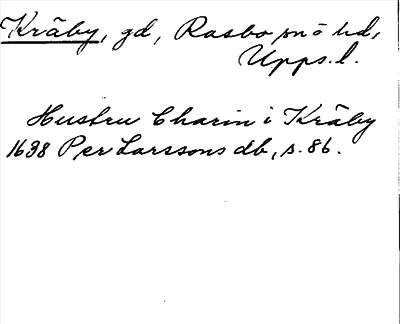 Kråby, gd, Rasbo sn o hd,
Upps.l.
Hustru Charin i Kråby
1638 Per Larssons db, s. 86.